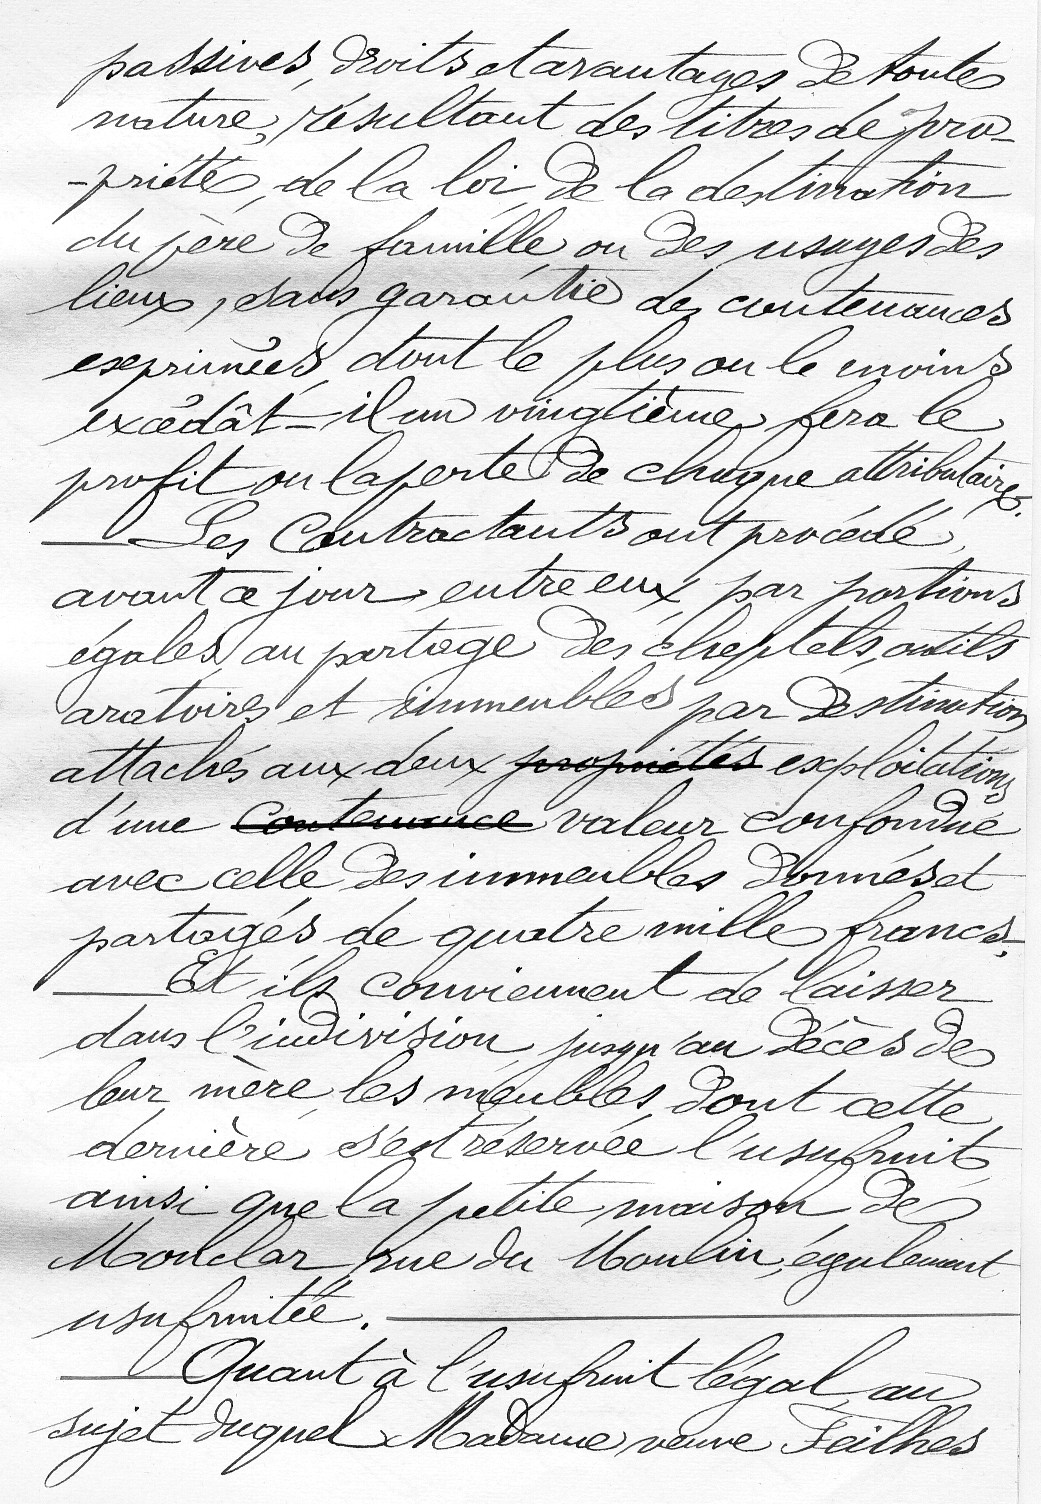 passives, droits et avantages de toute
nature, résultant des titres de pro-
-priété, de la loi, de la destination
du père de famille ou des usages des
lieux, sans garantie des contenances
exprimées, dont le plus ou le moins
excédât-il un vingtième, fera le
profit ou la perte de chaque attributaire.
Les contractants ont procédé,
avant ce jour, entre eux, par portions
égales, au partage des cheptels, outils
aratoires et immeubles par destination
attachés aux deux propriétés exploitations
d'une contenance valeur confondue
avec celle des immeubles donnés et
partagés de quatre mille francs.
Et ils conviennent de laisser
dans l'indivision, jusqu'au décès de
leur mère, les meubles, dont cette
dernière s'est réservée l'usufruit,
ainsi que la petite maison de
Monclar, rue du Moulin, également
usufruitée.
Quant à l'usufruit légal, au
sujet duquel Madame veuve Feilhes